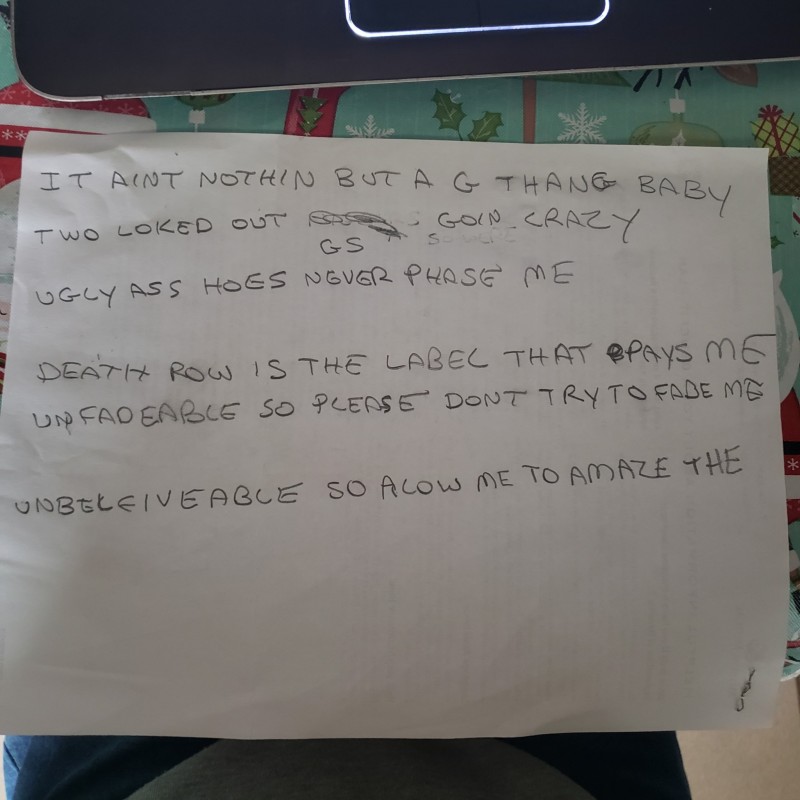 IT AINT NOTHIN BUT A G THANG BABY
TWO LOKED OUT GS GOIN CRAZY
UGLY ASS HOES NEVER PHASE ME
DEATH ROW IS THE LABEL THAT PAYS ME
UNFADEABLE SO PLEASE DONT TRY TO FADE ME
UNBELEIVEABLE SO ALOW ME TO AMAZE THE